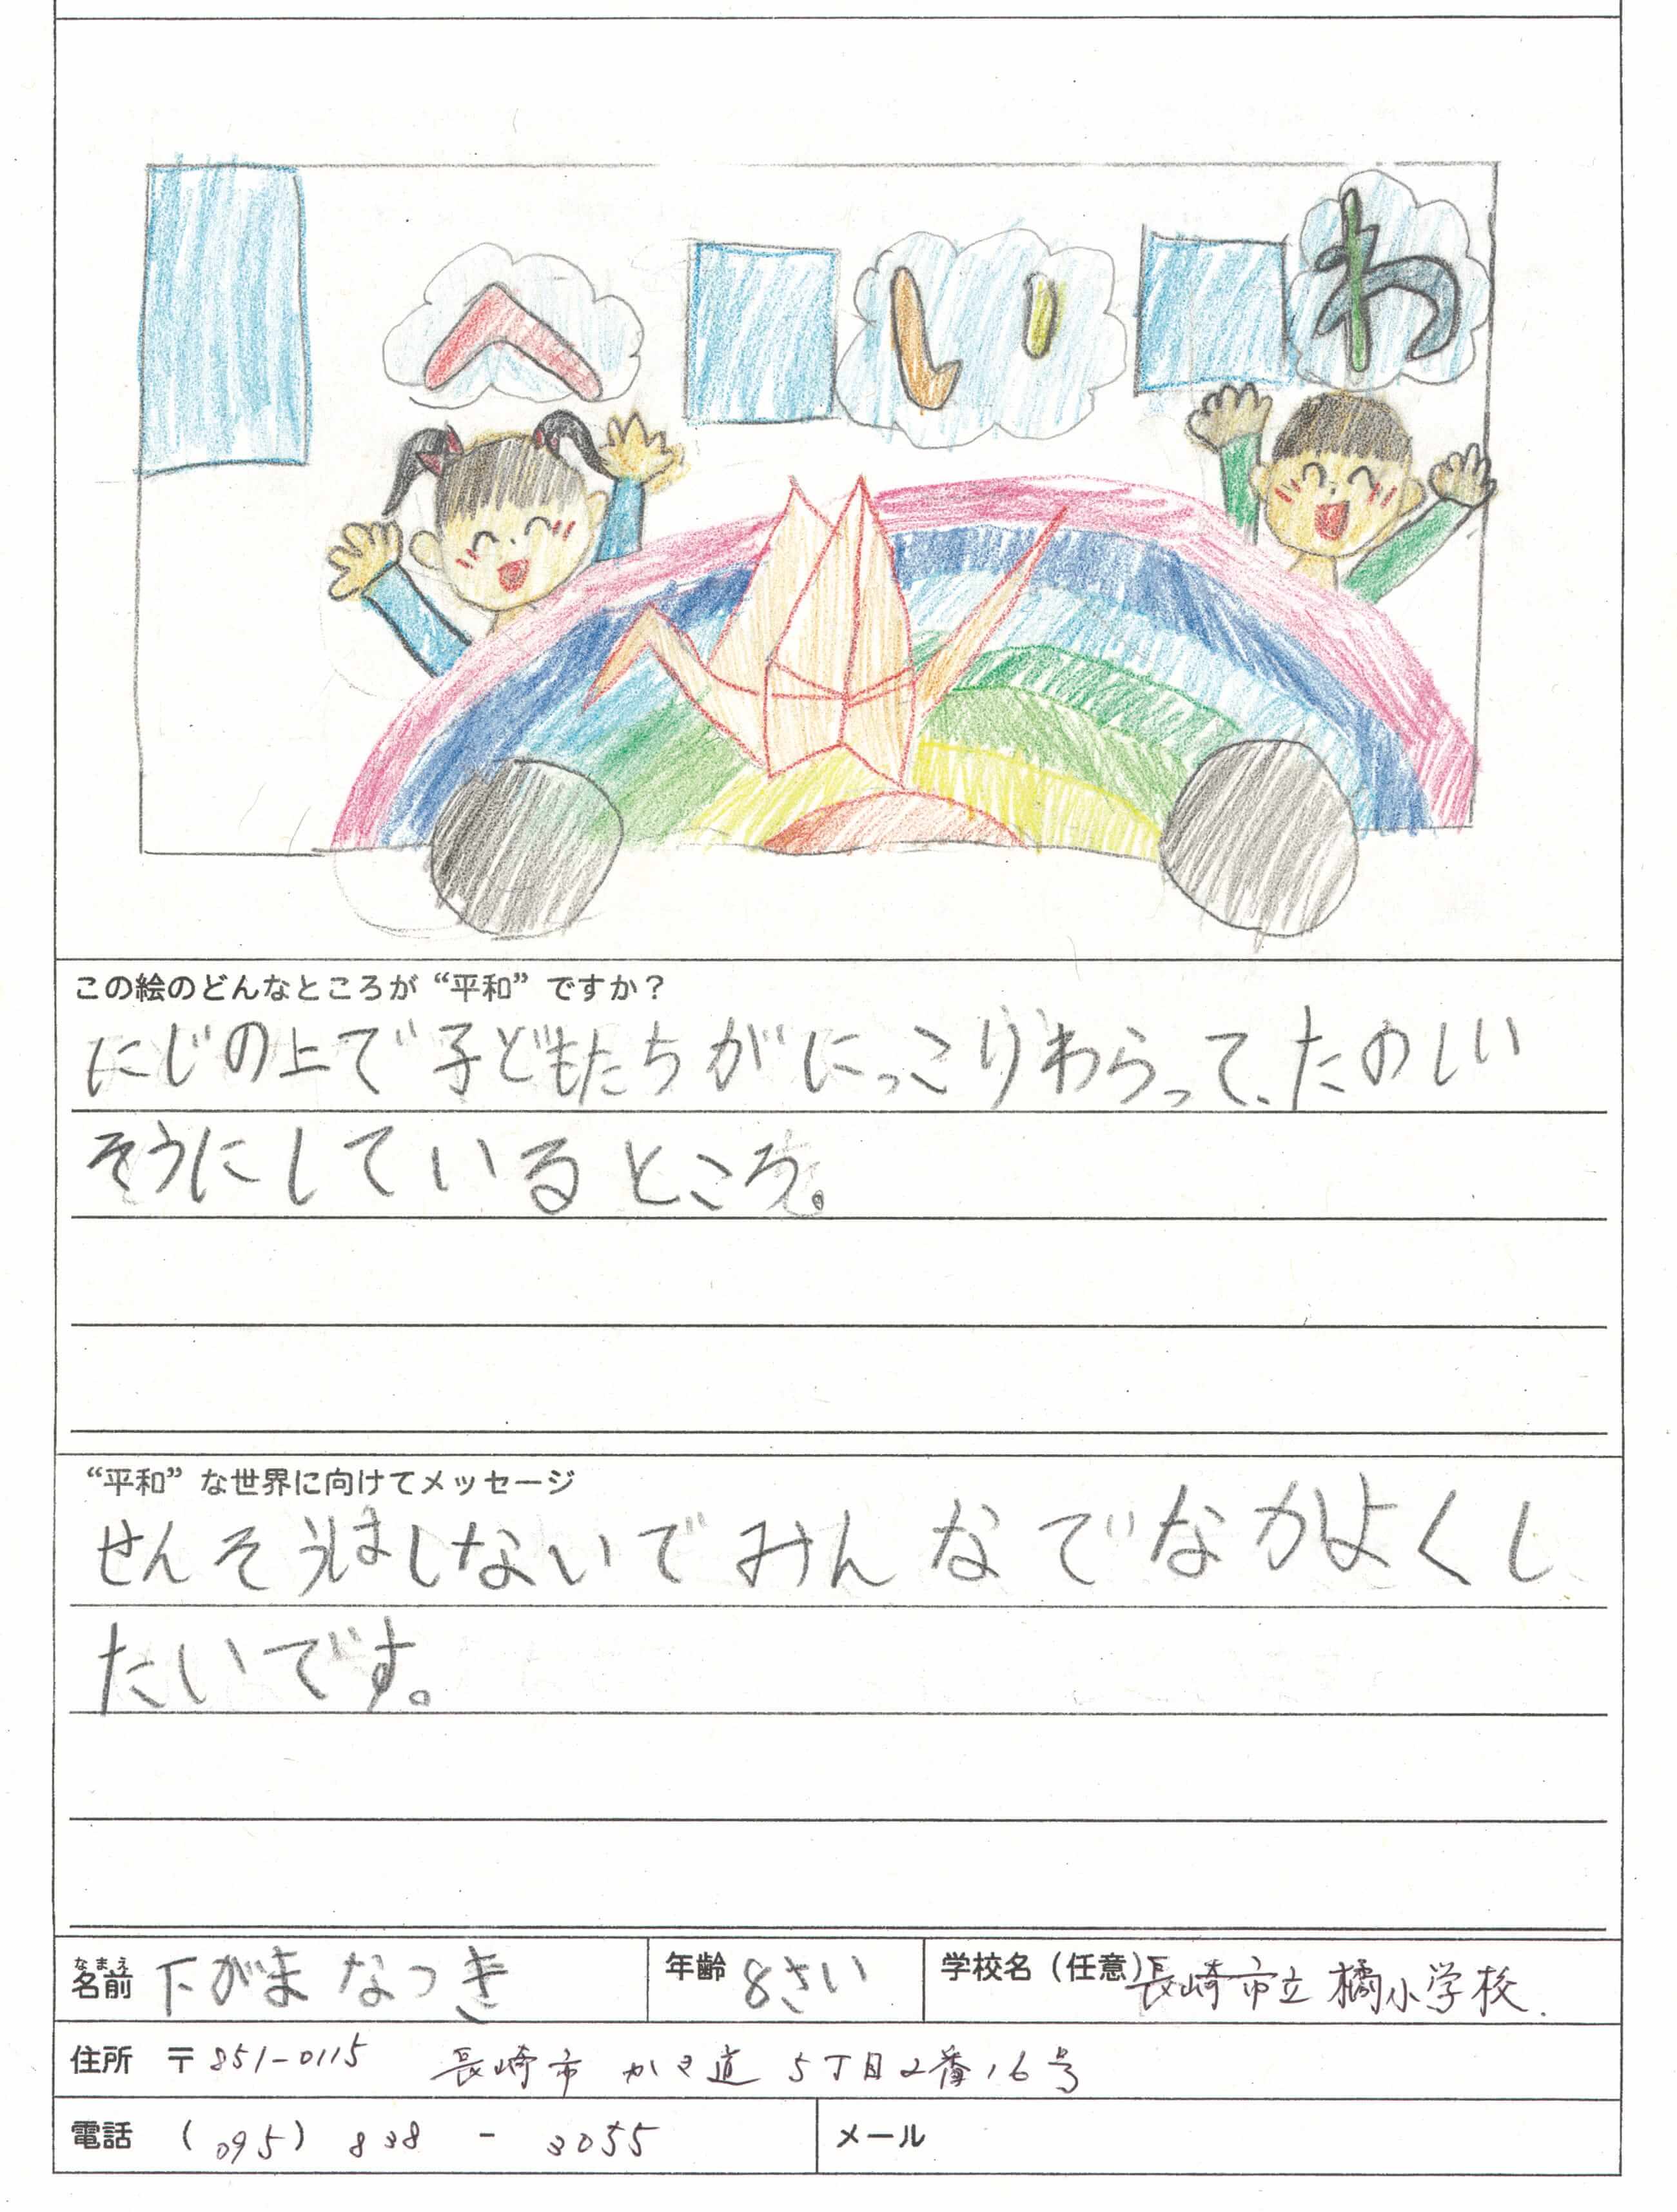 へ い わ
この絵のどんなところが“平和”ですか？
にじの上で子どもたちがにっこりわらって、たのしい
そうにしているところ。
“平和”な世界に向けてメッセージ
せんそうはしないでみんなでなかよくし
たいです。
なまえ
名前 下がま なつき 年齢 8さい 学校名（任意） 長崎市立橘小学校.
住所 〒851-0115 長崎市 かき道 5丁目2番16号
電話 (095) 838 - 3055 メール